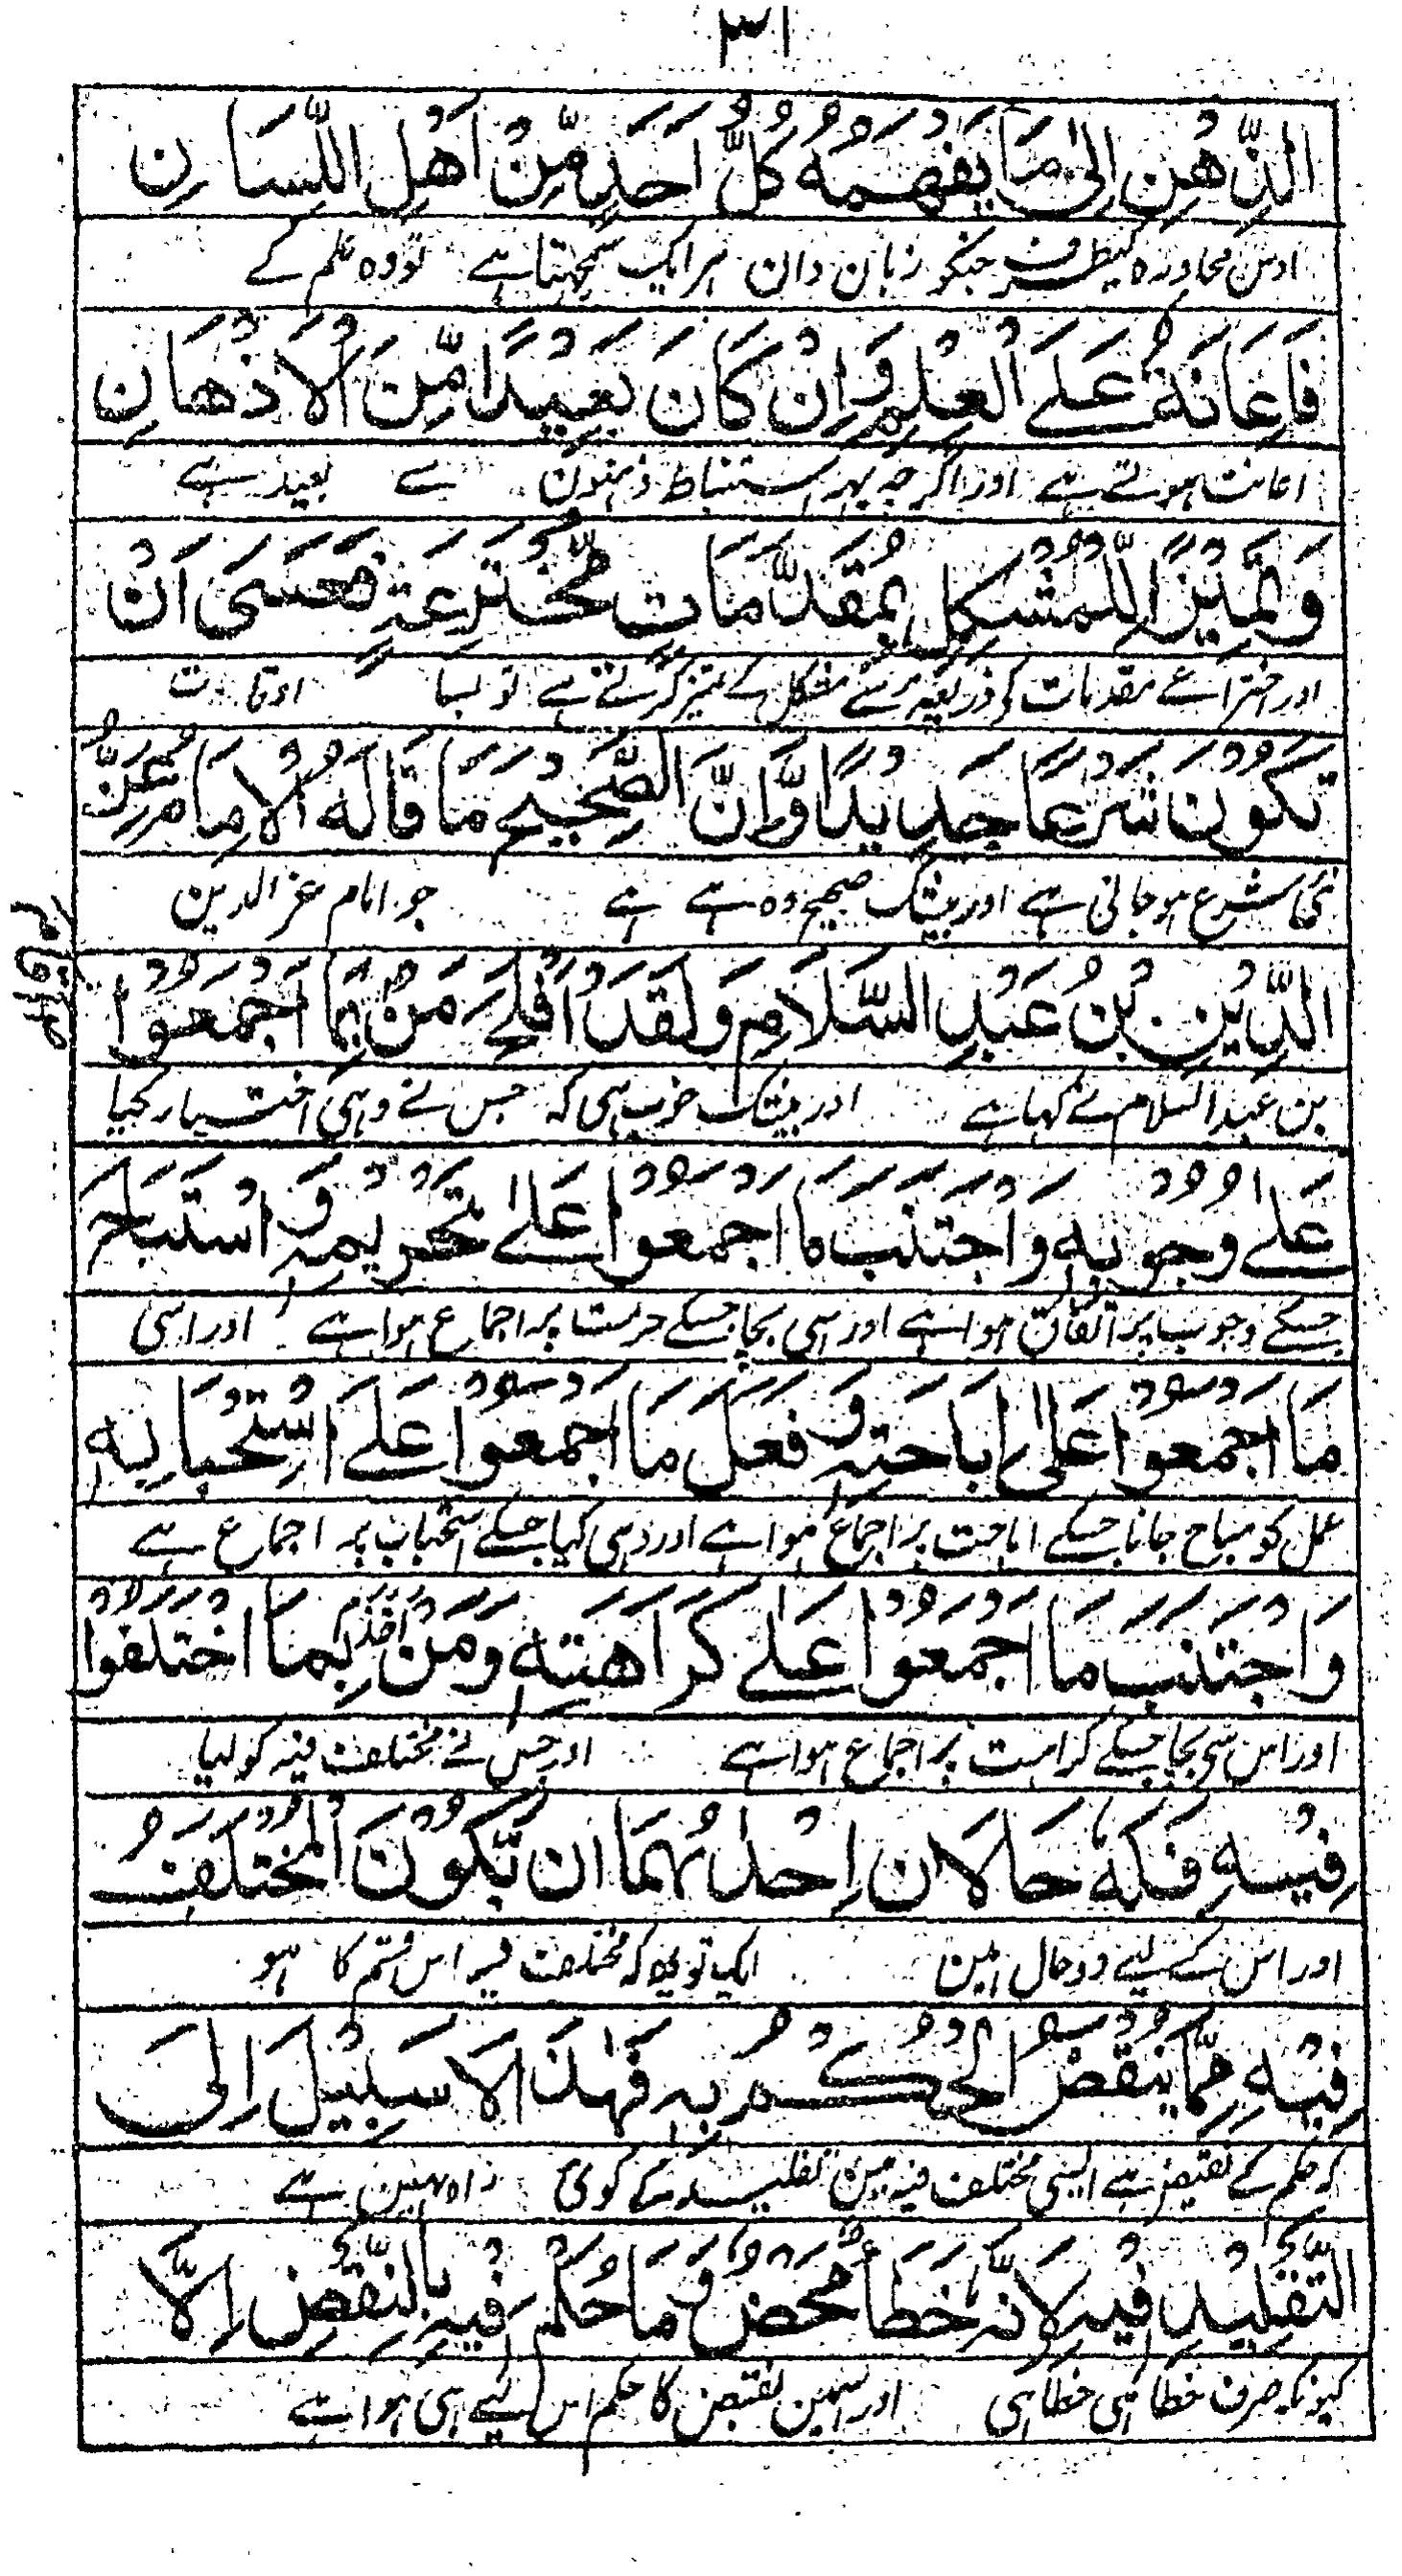 ٣١
الذِّهْنِ اِلٰى مَا يَفْهَمُهٗ كُلُّ اَحَدٍ مِّنْ اَهْلِ اللِّسَانِ
اوس محاورہ کیطرف جنکو زبان دان ہر ایک سمجھتا ہے تو وہ علم کے
فَاِعَانَةٌ عَلَى الْعِلْمِ وَاِنْ كَانَ بَعِيْدًا مِّنَ الْاَذْهَانِ
اعانت ہوتے ہے اور اگرچہ یہہ استنباط ذہنون سے بعید ہے
وَتَمْيِيْزًا لِّلْمُشْكِلِ بِمُقَدَّمَاتٍ مُّخْتَرَعَةٍ فَعَسٰى اَنْ
اور اختراعے مقدمات کی ذریعہ سے مشکل کے تمیز کرتے ہے تو بسا اوقات
تَكُوْنَ شَرْعًا جَدِيْدًا وَّاِنَّ الصَّحِيْحَ مَا قَالَهُ الْاِمَامُ عِزُّ
نئی شرع ہو جاتی ہے اور بیشک صحیح وہ ہے ہے جو امام عز الدین
الدِّيْنِ بْنُ عَبْدِ السَّلَامِ وَلَقَدْ اَفْلَحَ مَنْ بِمَا اَجْمَعُوْا
بن عبد السلام نے کہا ہے اور بیشک خوب ہی کہ جس نے وہی اختیار کیا
عَلٰے وُجُوْبِهٖ وَاجْتَنَبَ مَا اَجْمَعُوْا عَلٰے تَحْرِيْمِهٖ وَاسْتَبَاحَ
جسکے وجوب پر اتفاق ہوا ہے اور اسی بچا جسکے حرمت پر اجماع ہوا ہے اور اسی
مَا اَجْمَعُوْا عَلٰى اِبَاحَتِهٖ وَفَعَلَ مَا اَجْمَعُوْا عَلَے اسْتِحْبَابِهٖ
عمل کو مباح جانا جسکے اباحت پر اجماع ہوا ہے اور وہی کیا جسکے استحباب پر اجماع ہے
وَاجْتَنَبَ مَا اَجْمَعُوْا عَلٰے كَرَاهَتِهٖ وَمَنْ اَخَذَ بِمَا اخْتَلَفُوْا
اور اس سی بچا جسکے کراہت پر اجماع ہوا ہے اور جس نے مختلف فیہ کو لیا
فِيْهِ فَلَهٗ حَالَانِ اِحْدٰىهُمَا اَنْ يَّكُوْنَ الْمُخْتَلَفُ
اور اس کے لیے دو حال ہین ایک تو یہ کہ مختلف فیہ اس قسم کا ہو
فِيْهِ مِمَّا يَنْقُضُ الْحُكْمُ بِهٖ فَهٰذَا لَا سَبِيْلَ اِلَى
کہ حکم کے نقیض ہے ایسی مختلف فیہ مین تقلید کے کوئی راہ نہین ہے
التَّقْلِيْدِ فِيْهِ لِاَنَّهٗ خَطَأٌ مَحْضٌ وَمَا حُكِمَ فِيْهِ بِالنَّقْضِ اِلَّا
کیونکہ صرف خطا ہی خطا ہی اور اسمین نقیض کا حکم اس لیے ہی ہوا ہے